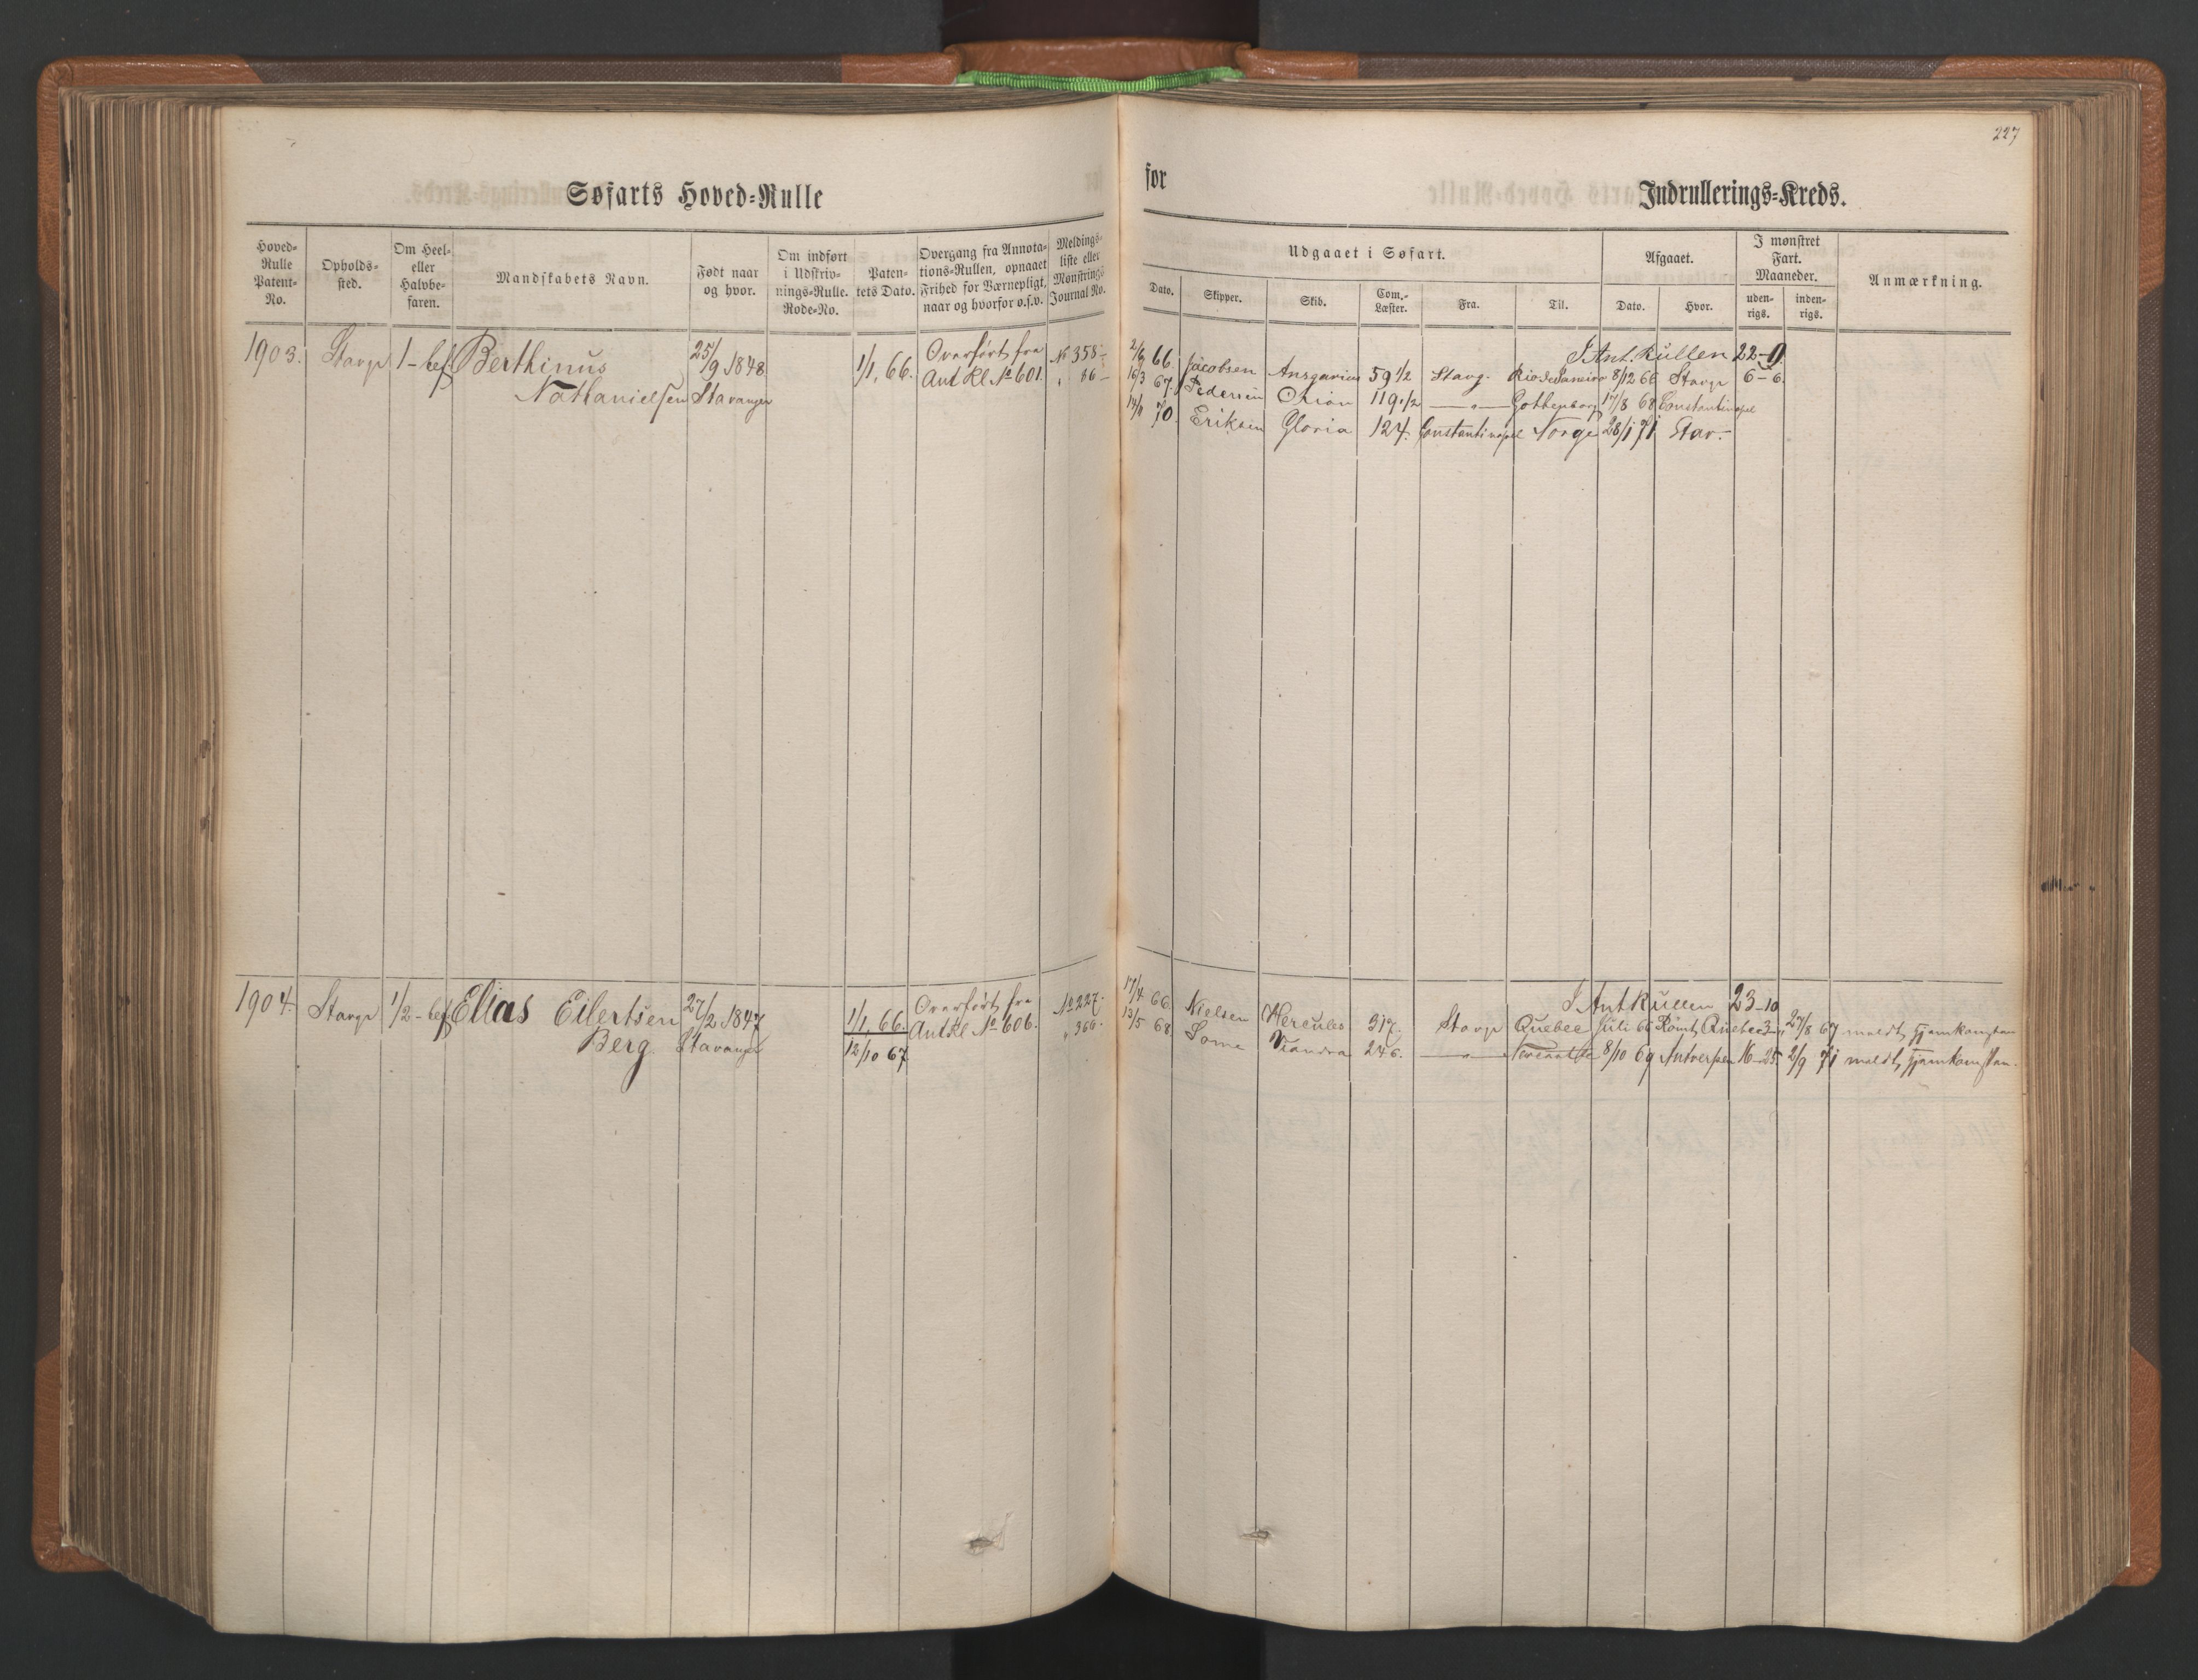 227
Søfarts Hoved-Rulle
for
Indrullerings-Kreds.
Hoved-Rulle Patent-No.
Opholds-sted.
Om Heel- eller Halvbe-faren.
Mandskabets Navn.
Født naar og hvor.
Om indført i Udskriv-nings-Rulle. Rode-No.
Paten-tets Dato.
Overgang fra Annota-tions-Rullen, opnaaet Frihed for Værnepligt, naar og hvorfor o.s.v.
Meldings-liste eller Mønstrings Journal No.
Udgaaet i Søfart.
Dato.
Skipper.
Skib.
Com.-Læster.
Fra.
Til.
Afgaaet.
Dato.
Hvor.
I mønstret Fart. Maaneder.
uden-rigs.
inden-rigs.
Anmærkning.
1903. Stavgr 1-bef Berthinus 25/9 1848 1/1, 66. Overført fra No 358
Nathanielsen Stavanger Ant Rl No 601. " 86 –
I Ant. Rullen 22-0
2/6 66 Jacobsen Ansgarius 59 1/2 Stavg. Rio de Janeiro 8/12 66 Stavgr 6-6
16/3 67. Pedersen Orion 119 1/2 —"— Gothenborg 17/8 68 Constantinopel
70. Eriksen Gloria 124. Constantinopel Norge 28/1 71 Stav.
1904. Stavgr 1/2-bef Elias Eilertsen 27/2 1847 1/1, 66. Overført fra No 227.
Berg. Stavanger 12/10 67 Ant Rl No 606. " 366.
I Ant Rullen 23-10
17/4 66 Nielsen Hercules 317. Stavgr Quebec Juli 66 Rømt, Quebec 27/8 67 meldt, Hjemkomsten
13/5 68 246. —"— 8/10 69 Antverpen 16-25 2/9 71 meldt, Hjemkomsten.